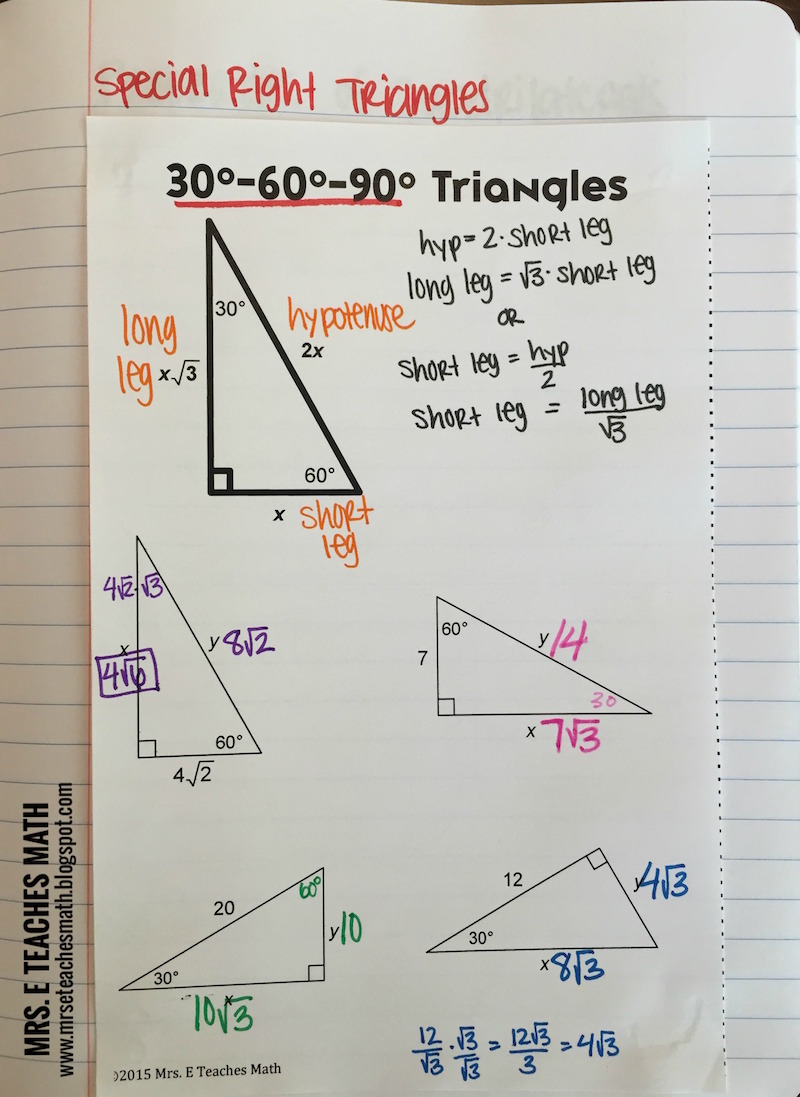 Special Right Triangles
30°-60°-90° Triangles
hyp = 2 · short leg
long leg = √3 · short leg
OR
short leg = hyp/2
short leg = long leg/√3
30°
long
leg
x√3
hypotenuse
2x
60°
x
short
leg
4√2 · √3
x
4√6
y 8√2
60°
4√2
60°
7
y 14
30
x 7√3
20
60°
y 10
30°
x
10√3
12
y 4√3
30°
x 8√3
12/√3 · √3/√3 = 12√3/3 = 4√3
©2015 Mrs. E Teaches Math
MRS. E TEACHES MATH
www.mrseteachesmath.blogspot.com